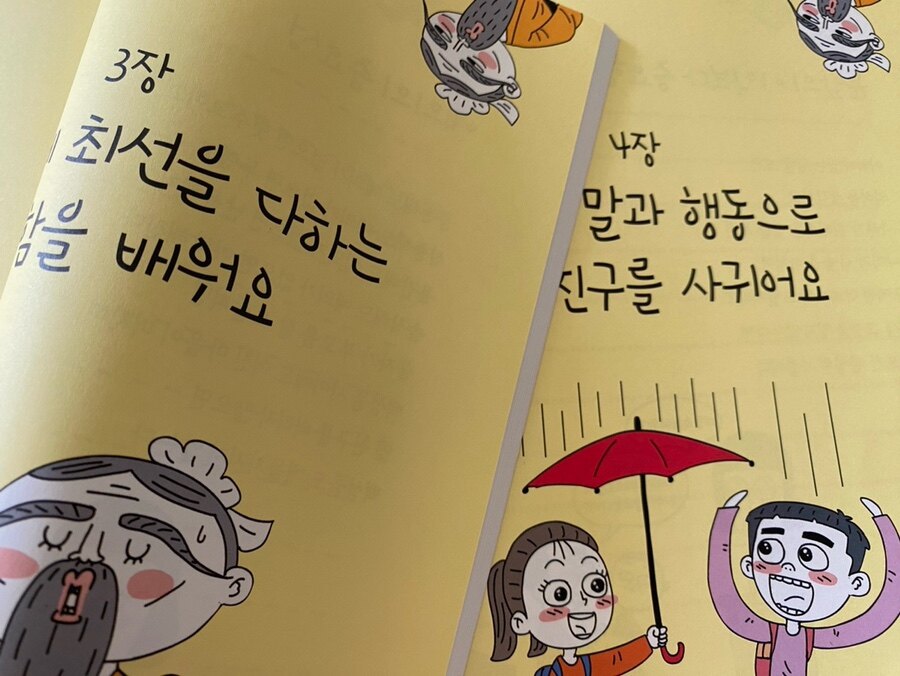 3장
최선을 다하는
배워요
4장
말과 행동으로
친구를 사귀어요